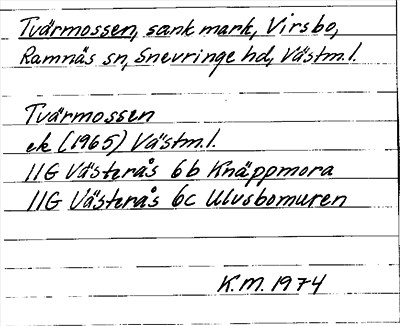 Tvärmossen, sank mark, Virsbo,
Ramnäs sn, Snevringe hd, Västm.l.
Tvärmossen
ek (1965) Västm.l.
11G Västerås 6b Knäppmora
11G Västerås 6c Ulvsbomuren
K.M. 1974